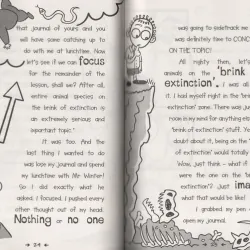 that journal of yours and you
will have some catching up to
do with me at lunchtime. Now
let's see if we can focus
for the remainder of the
lesson, shall we? After all,
entire animal species on
the brink of extinction is
an extremely serious and
important topic.'
It was too. And the
last thing I wanted to do
was lose my journal and spend
my lunchtime with Mr Winter!
So I did exactly what he
asked. I focused. I pushed every
other thought out of my head.
Nothing or no one
24
was going to sidetrack me
was definitely time to CONC
ON THE TOPIC!
All righty then, let's
animals on the 'brink
extinction'. I was all
it. I had myself right in the 'brink
extinction' zone. There was just
room in my mind for anything else
'brink of extinction' stuff. Ye
doubt about it, being on the '
of extinction' would totally
'Wow, just think – what if
were the one on the 'brin
extinction'? Just ima
what that would be like!
I grabbed my pen,
open my journal.
25